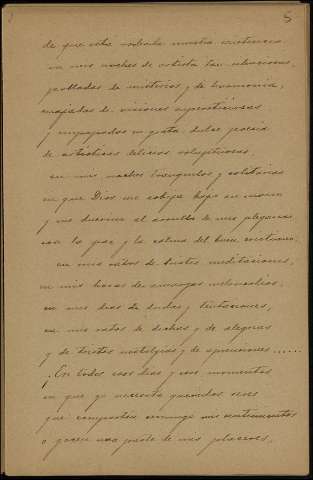 5
de que está rodeada nuestra existencia
en mis noches de artista tan silenciosas,
pobladas de misterios y de harmonía,
cuajadas de visiones supersticiosas
y empapadas en grata dulce poesía
de artísticos delirios voluptuosos
en mis noches tranquilas y solitarias
en que Dios me cobija bajo su manto
y me duermo al arrullo de mis plegarias
con la paz y la calma del buen cristiano:
en mis ratos de tristes meditaciones,
en mis horas de amargas melancolías,
en mis días de dudas y tentaciones,
en mis ratos de dichas y de alegrías
y de tristes nostalgias y de opresiones......
¡En todos esos días y esos momentos
en que yo necesito queridos seres
que compartan conmigo mis sentimientos
o gocen una parte de mis placeres,